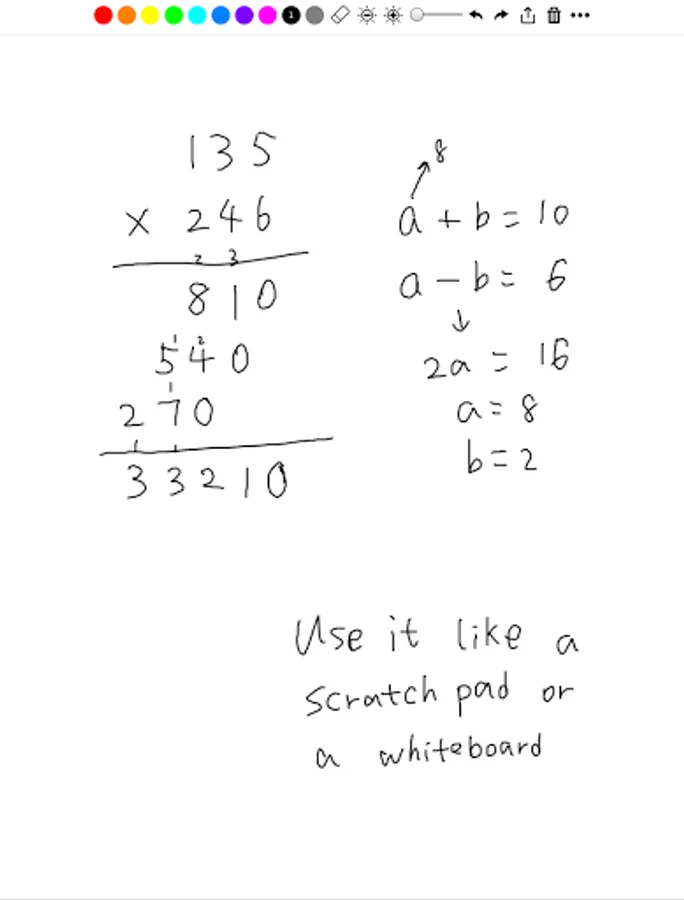 1
135
× 246
2 3
810
1 2
540
1
270
1 1
33210
8
a + b = 10
a - b = 6
↓
2a = 16
a = 8
b = 2
Use it like a
scratch pad or
a whiteboard